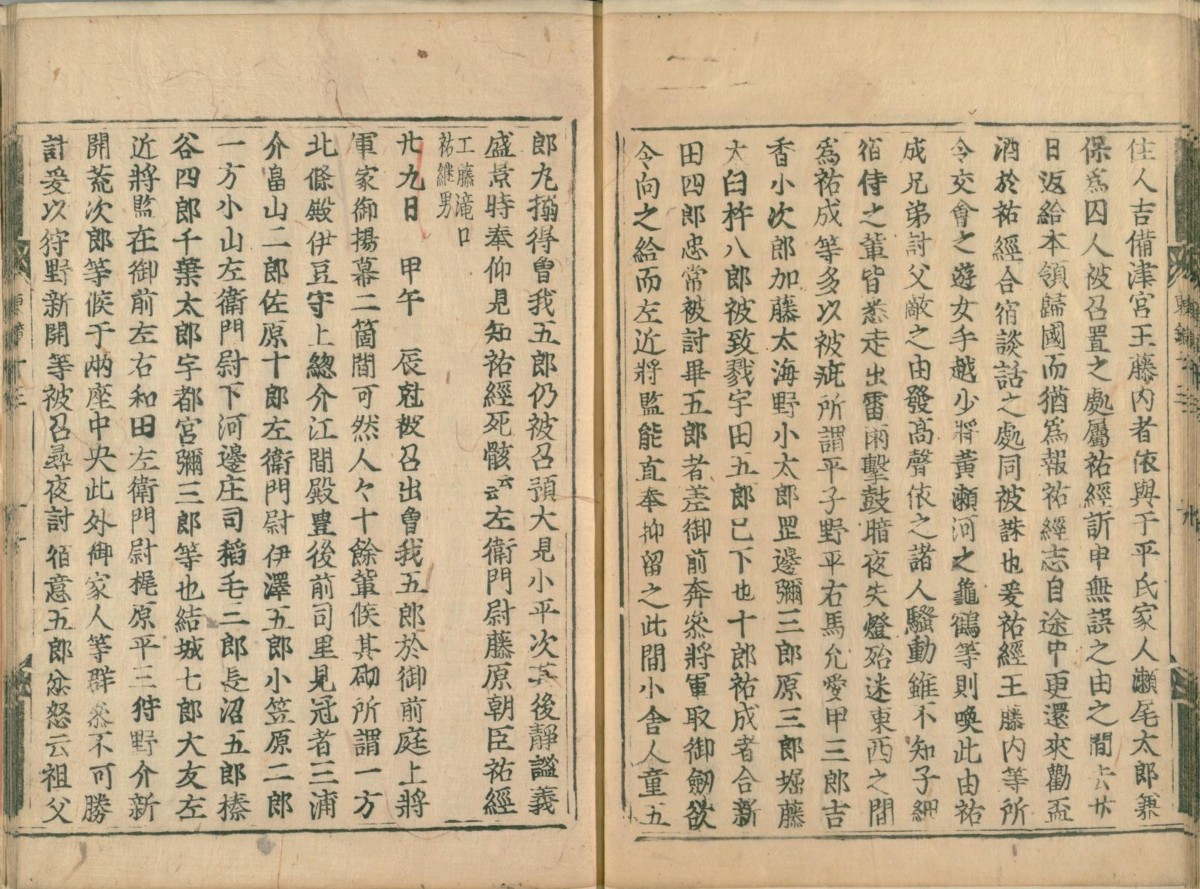 住人吉備津宮王藤内者依與于平氏家人瀬尾太郎兼
保爲囚人被召置之處屬祐經訴申無誤之由之間去廿
日返給本領歸國而猶爲報祐經志自途中更還來勸盃
酒於祐經合宿談話之處同被誅也爰祐經王藤内等所
令交會之遊女手越少將黃瀬河之龜鶴等則喚此由祐
成兄弟討父敵之由發高聲依之諸人騒動雖不知子細
宿侍之輩皆悉走出雷雨擊鼓暗夜失燈殆迷東西之間
爲祐成等多以被疵所謂平子野平右馬允愛甲三郎吉
香小次郎加藤太海野小太郎罡邊彌三郎原三郎堀藤
太臼杵八郎被致戮宇田五郎已下也十郎祐成者合新
田四郎忠常被討畢五郎者差御前奔參將軍取御劔欲
令向之給而左近將監能直奉抑留之此間小舍人童五
郎丸搦得曽我五郎仍被召預大見小平次其後靜謐義
盛景時奉仰見知祐經死骸云云左衛門尉藤原朝臣祐經
工藤滝口
祐継男
廿九日 甲午 辰尅被召出曽我五郎於御前庭上將
軍家御揚幕二箇間可然人々十餘輩候其砌所謂一方
北條殿伊豆守上總介江間殿豊後前司里見冠者三浦
介畠山二郎佐原十郎左衛門尉伊澤五郎小笠原二郎
一方小山左衛門尉下河邊庄司稻毛三郎長沼五郎榛
谷四郎千葉太郎宇都宮彌三郎等也結城七郎大友左
近將監在御前左右和田左衛門尉梶原平三狩野介新
開荒次郎等候于兩座中央此外御家人等群參不可勝
計爰以狩野新開等被召尋夜討宿意五郎忿怒云祖父